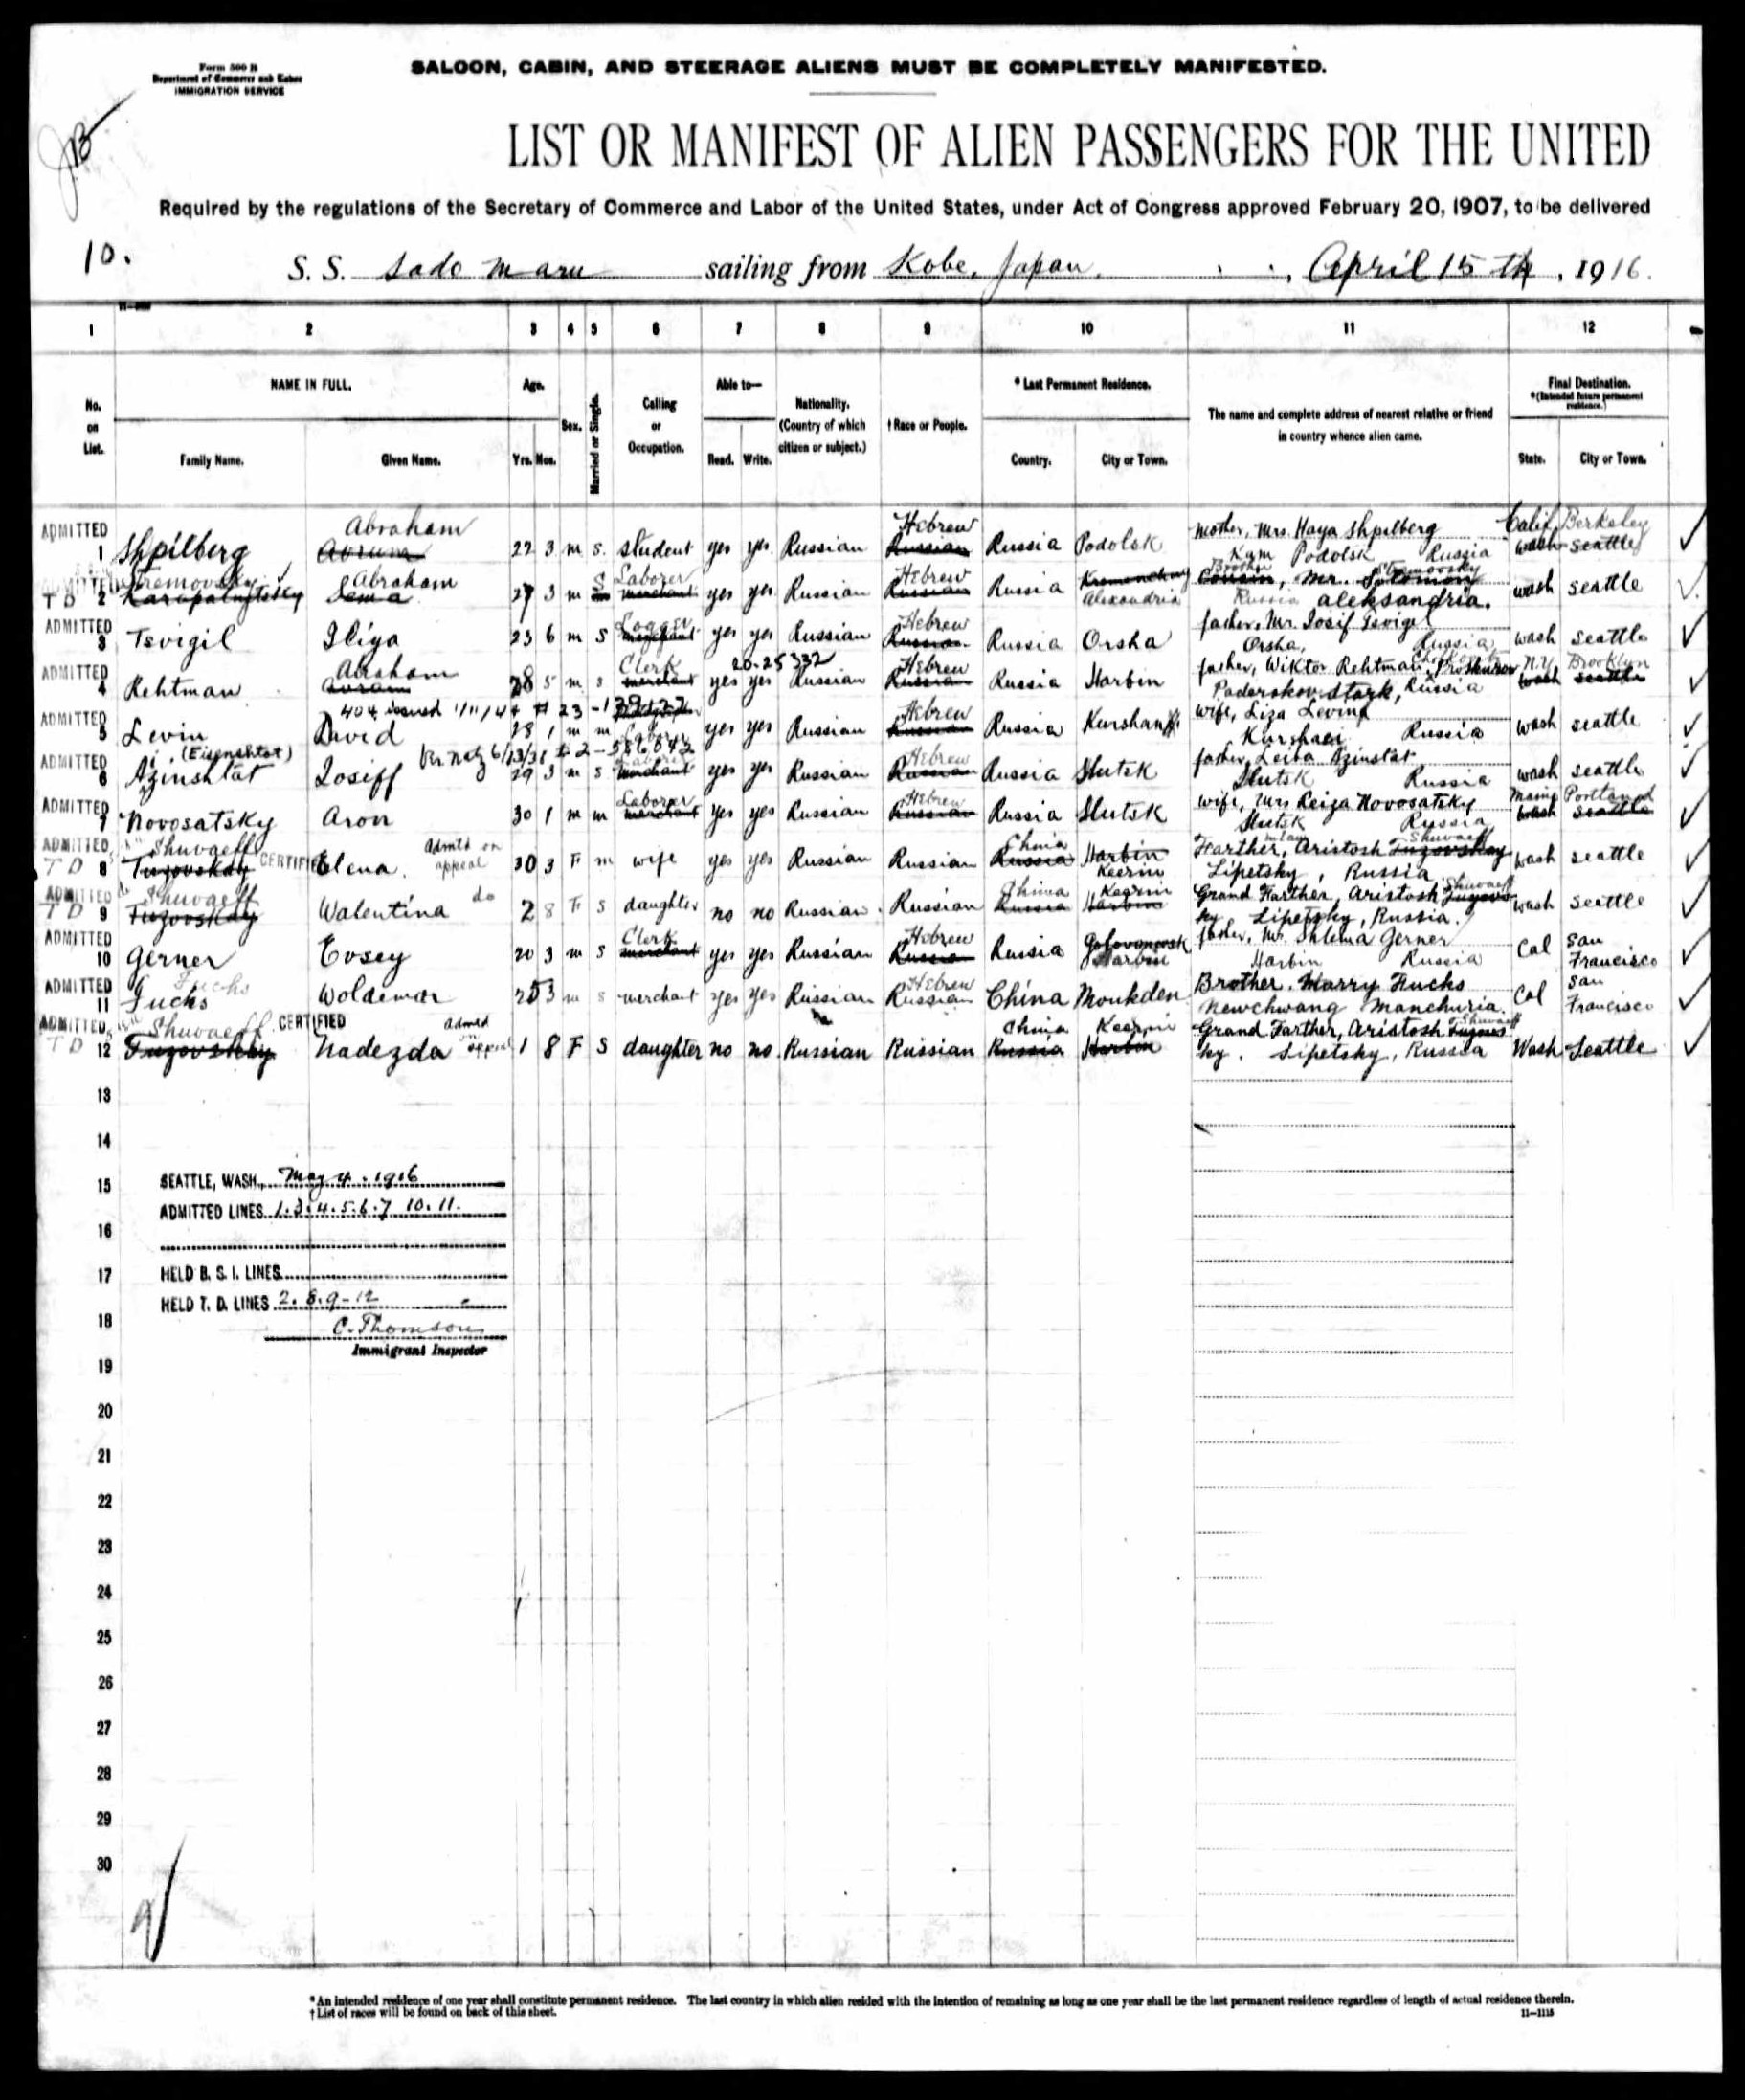 Form 500 B
Department of Commerce and Labor
IMMIGRATION SERVICE
SALOON, CABIN, AND STEERAGE ALIENS MUST BE COMPLETELY MANIFESTED.
LIST OR MANIFEST OF ALIEN PASSENGERS FOR THE UNITED
Required by the regulations of the Secretary of Commerce and Labor of the United States, under Act of Congress approved February 20, 1907, to be delivered
10.
S. S. Sado Maru sailing from Kobe, Japan, April 15th, 1916.
1 2 3 4 5 6 7 8 9 10 11 12
No. on List.
NAME IN FULL.
Family Name. Given Name.
Age.
Yrs. Mos.
Sex.
Married or Single.
Calling or Occupation.
Able to—
Read. Write.
Nationality. (Country of which citizen or subject.)
† Race or People.
* Last Permanent Residence.
Country. City or Town.
The name and complete address of nearest relative or friend in country whence alien came.
Final Destination.
*(Intended future permanent residence.)
State. City or Town.
Abraham Hebrew Calif. Berkeley
ADMITTED 1 Shpilberg 22 3 m s. student yes yes Russian Russian Russia Podolsk mother, Mrs. Haya Shpilberg wash seattle
Podolsk Russia
Abraham S Laborer Hebrew Brother
T D 2 Sema 27 3 m merchant yes yes Russian Russian Russia Alexandria Cousin, Mr. Solomon wash seattle
Russia aleksandria.
Logger Hebrew
ADMITTED 3 Tsvigil Iliya 23 6 m s yes yes Russian Russian Russia Orsha father, Mr. Iosif Tsvigel wash seattle
Orsha, Russia
Abraham Clerk 20-25332 Hebrew N.Y. Brooklyn
ADMITTED 4 Rehtman Avram 28 5 m s merchant yes yes Russian Russian Russia Harbin father, Wiktor Rehtman, wash seattle
Russia
404 issued Hebrew
ADMITTED 5 Levin David 28 1 m m Laborer yes yes Russian Russian Russia wife, Liza Levina wash seattle
Russia
(Eisenshtat) 6/13/31 Laborer Hebrew
ADMITTED 6 Azinshtat Iosiff 29 3 m s merchant yes yes Russian Russian Russia Slutsk father, Leiba Azinstat wash seattle
Slutsk Russia
Laborer Hebrew Maine Portland
ADMITTED 7 Novosatsky Aron 30 1 m m merchant yes yes Russian Russian Russia Slutsk wife, Mrs Reiza Novosatsky wash seattle
Slutsk Russia
Shuvaeff Admtd on appeal China Keerin in law Shuvaeff
ADMITTED T D 8 Tuzovskay CERTIFIED Elena. 30 3 F m wife yes yes Russian Russian Russia Harbin Farther, Aristosh Tuzovskay wash seattle
Lipetsky, Russia.
Shuvaeff do China Keerin Shuvaeff
ADMITTED T D 9 Tuzovskay Walentina 2 8 F s daughter no no Russian. Russian Russia Harbin Grand Farther, Aristosh Tuzovs wash seattle
ky Lipetsky, Russia.
Clerk Hebrew
ADMITTED 10 Gerner Evsey 20 3 m s merchant yes yes Russian Russian Russia Harbin father, Mr. Shlema Gerner Cal San Francisco
Harbin Russia
Fuchs Hebrew
ADMITTED 11 Fucks Woldemar 25 3 m s merchant yes yes Russian Russian China Moukden Brother. Harry Fucks Cal San Francisco
Newchwang Manchuria.
Shuvaeff CERTIFIED Admtd on appeal China Keerin Shuvaeff
ADMITTED T D 12 Tuzovskay Nadezda 1 8 F S daughter no no Russian Russian Russia Harbin Grand Farther, Aristosh Tuzovs Wash Seattle
ky. Lipetsky, Russia
13
14
15
16
17
18
19
20
21
22
23
24
25
26
27
28
29
30
SEATTLE, WASH., May 4. 1916
ADMITTED LINES 1.3.4.5.6.7 10.11.
HELD B. S. I. LINES
HELD T. D. LINES 2. 8. 9-12
C. Thomson
Immigrant Inspector
* An intended residence of one year shall constitute permanent residence. The last country in which alien resided with the intention of remaining as long as one year shall be the last permanent residence regardless of length of actual residence therein.
† List of races will be found on back of this sheet.
11—1115